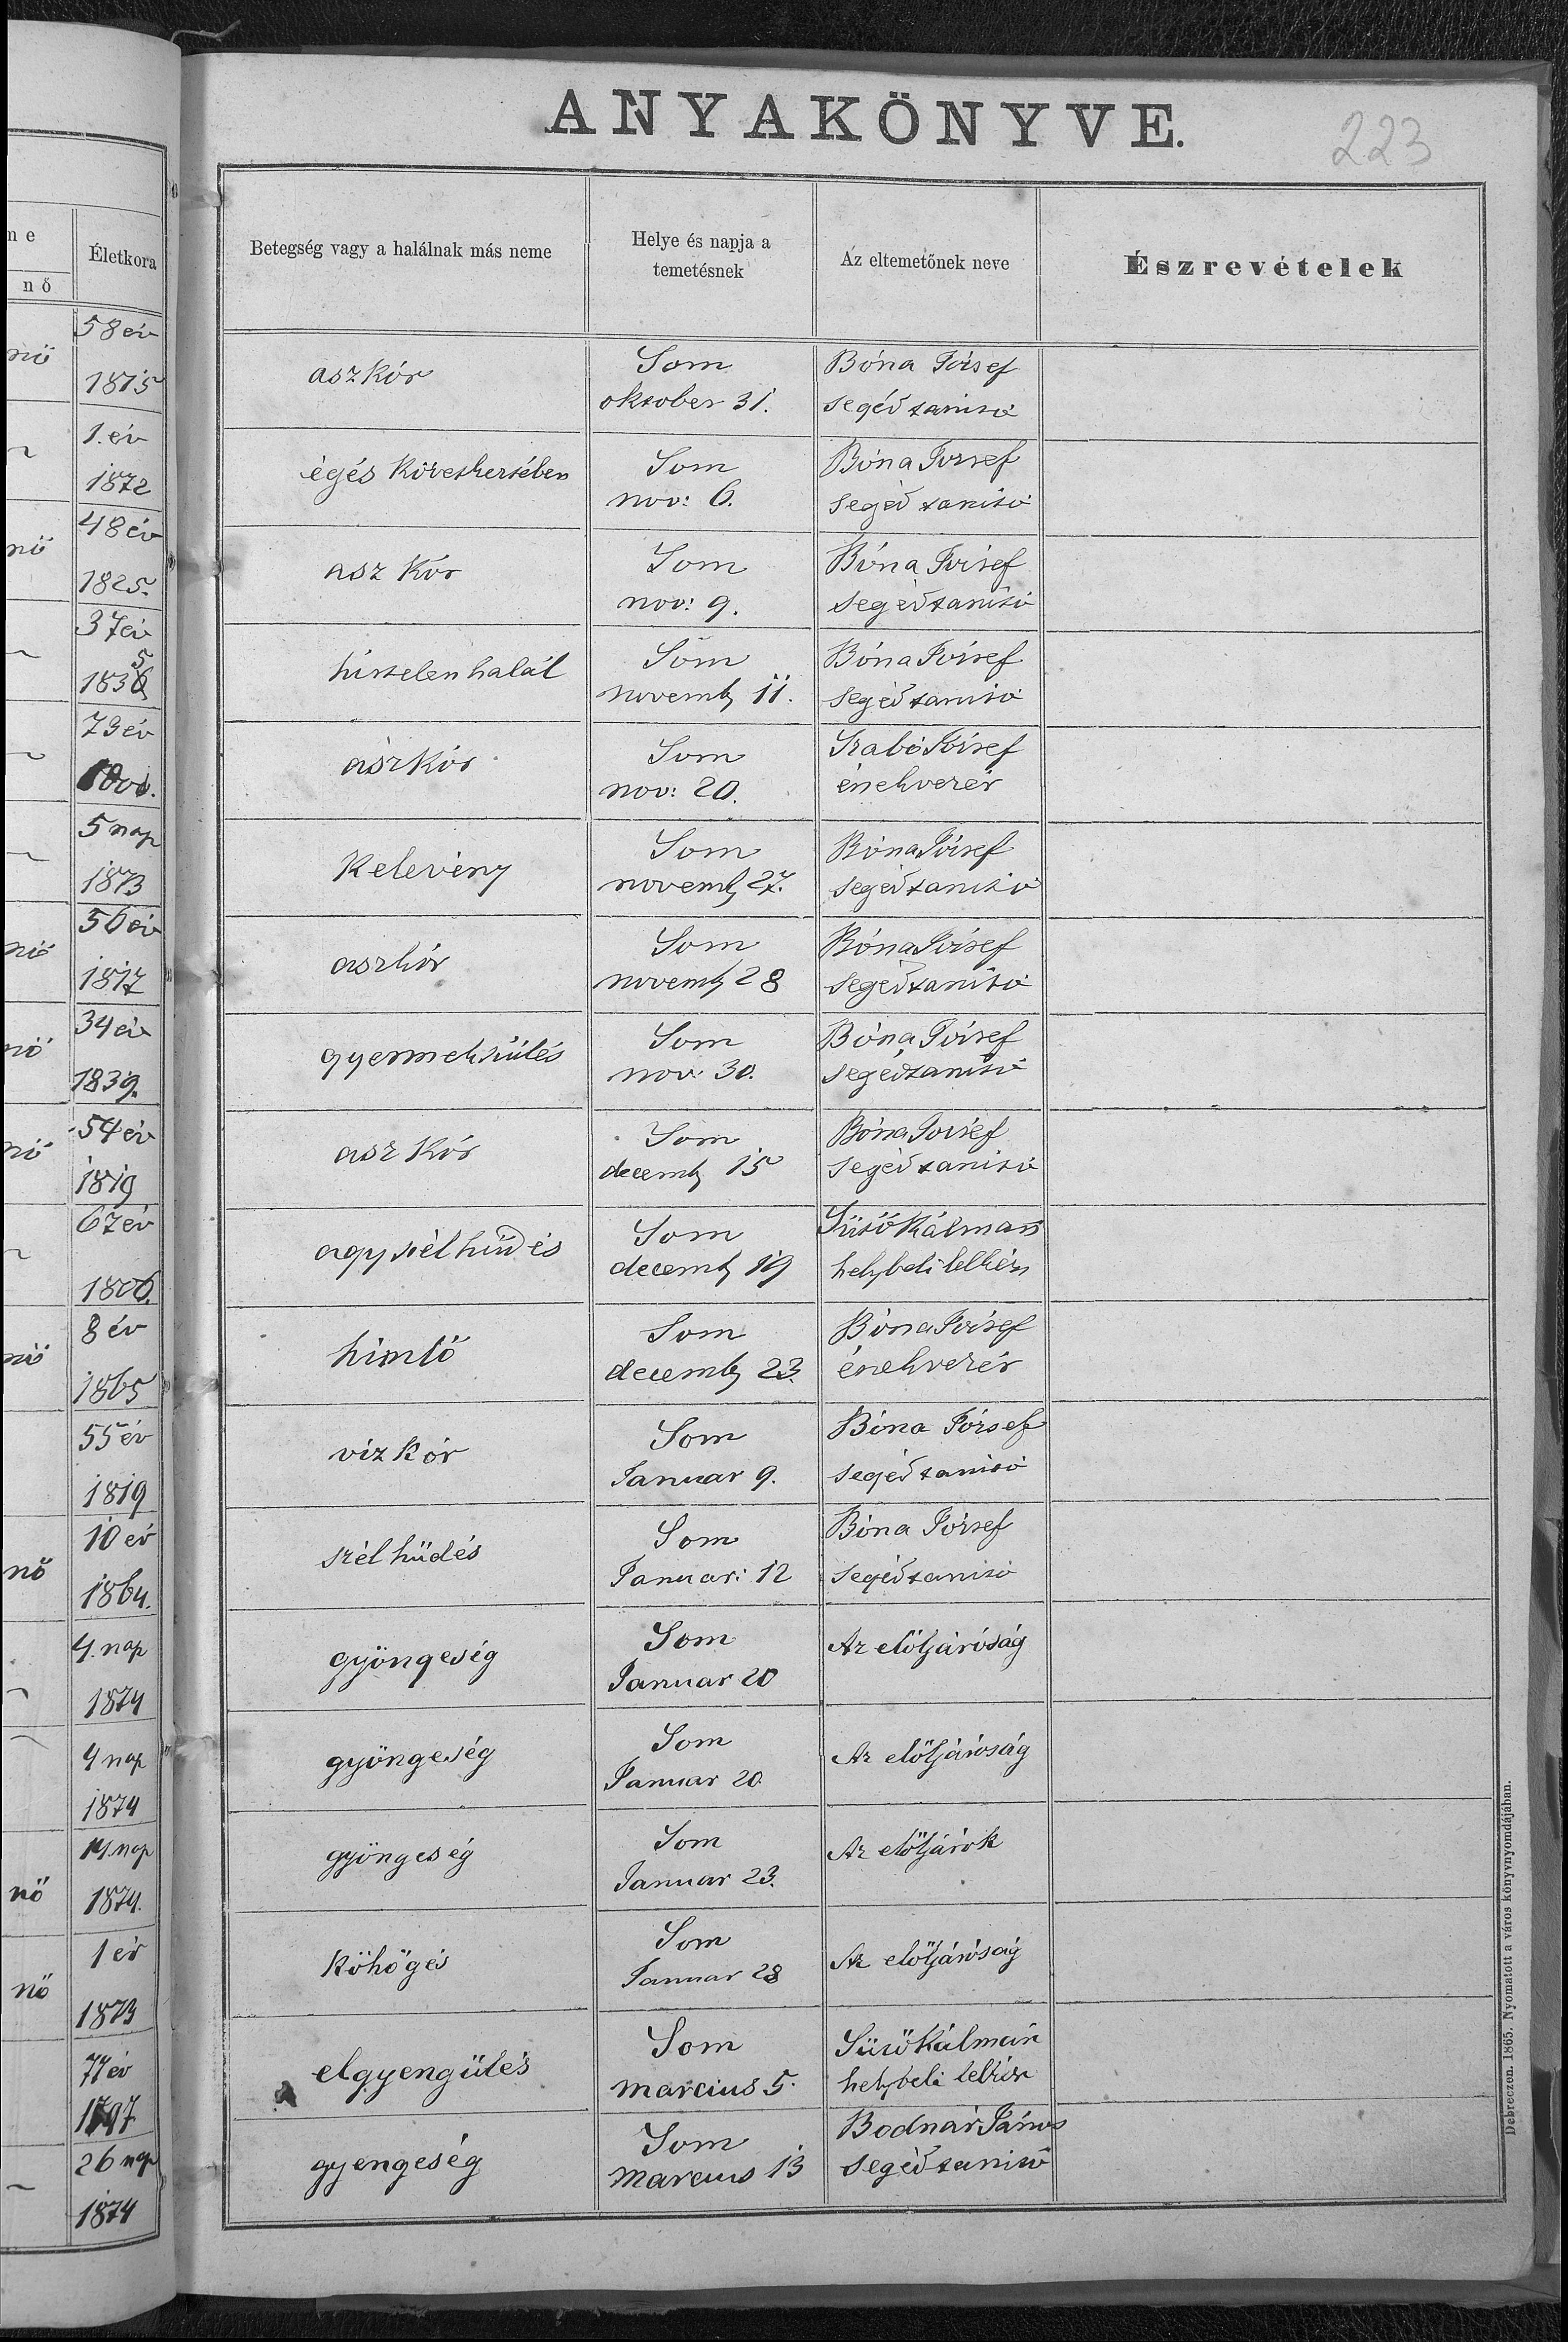 ANYAKÖNYVE.
223
ne
nő
Életkora
Betegség vagy a halálnak más neme
Helye és napja a temetésnek
Az eltemetőnek neve
Észrevételek
nő
58 év
1815
aszkór
Som
oktober 31.
Bóna József
segéd tanitó
~
1. év
1872
égés következtében
Som
nov: 6.
Bóna József
segéd tanitó
nő
48 év
1825.
asz kór
Som
nov: 9.
Bóna József
segéd tanitó
~
37 év
5
1836
hirtelen halál
Som
novemb 11.
Bóna József
segéd tanitó
~
73 év
1800.
aszkór
Som
nov: 20.
Szabó József
énekvezér
~
5 nap
1873
Kelevény
Som
novemb 27.
Bóna József
segéd tanitó
nő
56 év
1817
aszkór
Som
novemb 28
Bóna József
segéd tanitó
nő
34 év
1839.
gyermekszülés
Som
nov. 30.
Bóna József
segéd tanitó
nő
54 év
1819
asz kór
Som
decemb 15
Bóna József
segéd tanitó
~
67 év
1806.
agyszélhüdés
Som
decemb 19
Sütő Kálmán
helybeli lelkész
nő
8 év
1865
himlő
Som
decemb 23.
Bóna József
énekvezér
55 év
1819
víz kór
Som
Januar 9.
Bóna József
segéd tanitó
nő
10 év
1864.
szél hüdés
Som
Januar: 12
Bóna József
segéd tanitó
~
4. nap
1874
gyöngeség
Som
Januar 20
Az előljáróság
~
4 nap
1874
gyöngeség
Som
Januar 20
Az előljáróság
nő
14. nap
1874.
gyöngeség
Som
Januar 23.
Az előljárók
nő
1 év
1873
Köhögés
Som
Januar 28
Az előljáróság
77 év
1797
elgyengülés
Som
marcius 5.
Sütő Kálmán
helybeli lelkész
~
26 nap
1874
gyengeség
Som
Marcius 13
Bodnár János
segéd tanitó
Debreczen. 1865. Nyomatott a város könyvnyomdájában.